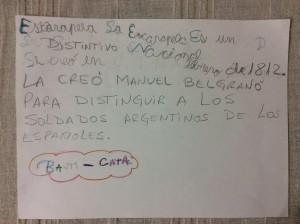 Escarapela La Escarapela Es un D
DISTINTIVO Nacional
Se creó en febrero de 1812.
LA CREÓ MANUEL BELGRANO
PARA DISTINGUIR A LOS
SOLDADOS ARGENTINOS DE LOS
ESPAÑOLES.